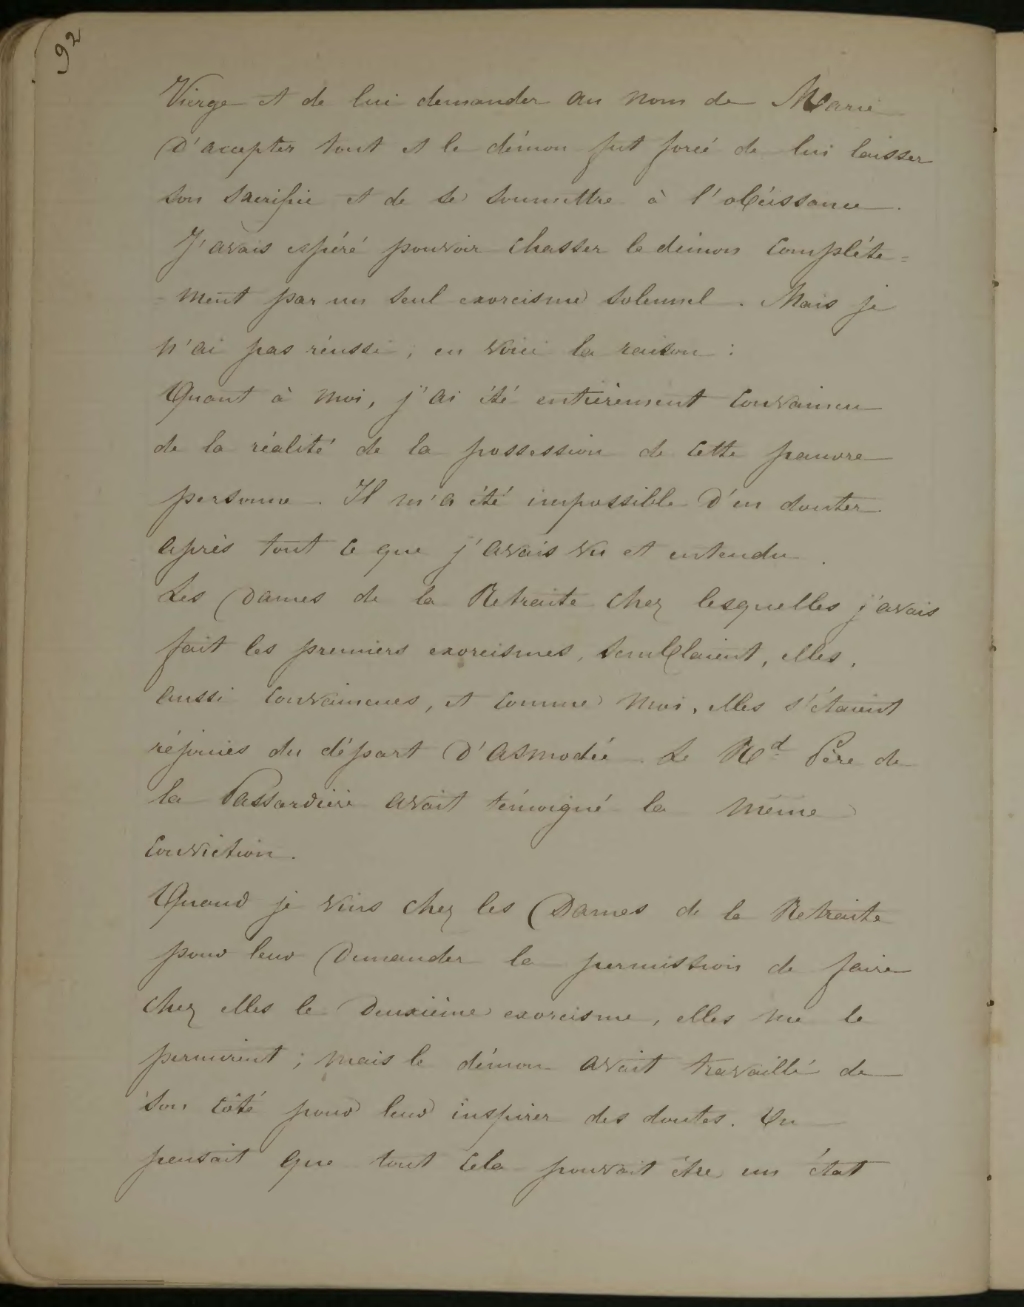 92
Vierge et de lui demander au nom de Marie
D'accepter tout et le démon fut forcé de lui laisser
son sacrifice et de se soumettre à l'obéissance.
J'avais espéré pouvoir chasser le démon complète=
=ment par un seul exorcisme solennel. Mais je
n'ai pas réussi ; en voici la raison :
Quant à moi, j'ai été entièrement convaincu
de la réalité de la possession de cette pauvre
personne. Il m'a été impossible d'en douter
après tout ce que j'avais vu et entendu.
Les Dames de la Retraite chez lesquelles j'avais
fait les premiers exorcismes, semblaient, elles,
aussi convaincues, et comme moi, elles s'étaient
réjouies du départ d'Asmodée. Le Rd Père de
la Passardière avait témoigné la même
conviction.
Quand je vins chez les Dames de la Retraite
pour leur Demander la permission de faire
chez elles le Deuxième exorcisme, elles me le
permirent ; mais le démon avait travaillé de
son côté pour leur inspirer des doutes. On
pensait que tout cela pouvait être un état